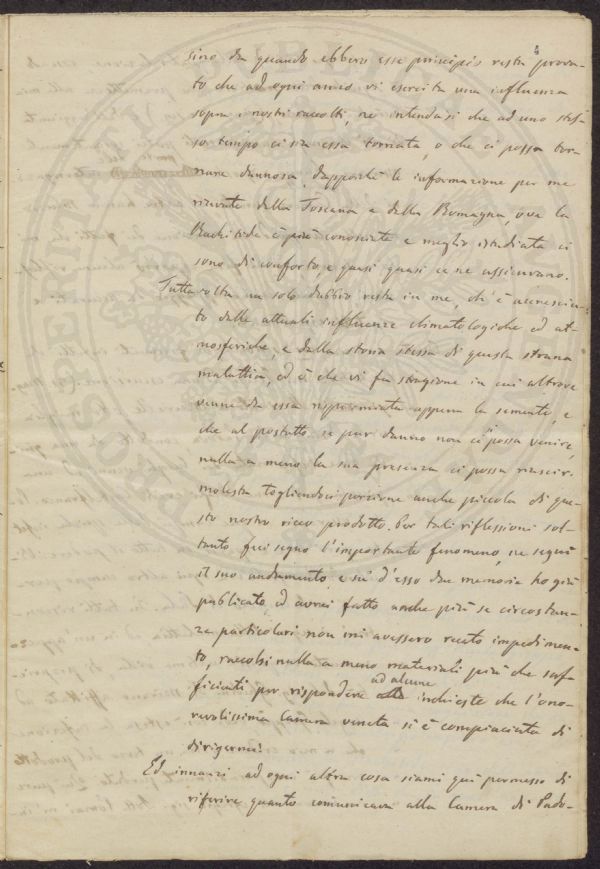 sino da quando ebbero esse principio resta prova-
to che ad ogni anno vi esercita una influenza
sopra i nostri raccolti, ne intendasi che ad uno stes-
so tempo ci sia essa tornata, o che ci possa tor-
nare dannosa, dapporchè le informazione per me
ricevute della Toscana e della Romagna, ove la
Rachitide è più conosciuta e meglio studiata ci
sono di conforto, e quasi quasi ce ne assicurano.
Tuttavolta un solo dubbio resta in me, ch'è accresciu-
to dalle attuali influenze climatologiche ed at-
mosferiche, e dalla storia stessa di questa strana
malattia, ed è che vi fu stagione in cui altrove
venne da essa risparmiata appena la semente, e
che al postutto se pur danno non ci possa venire,
nulla a meno la sua presenza ci possa riuscir
molesta togliendoci porzione anche piccola di que-
sto nostro ricco prodotto. Per tali riflessioni sol-
tanto feci segno l'importante fenomeno, ne seguii
il suo andamento, e su d'esso due memorie ho già
publicato, ed avrei fatto anche più se circostan-
ze particolari non mi avessero recato impedimen-
to, raccolsi nulla a meno materiali più che suf-
ficienti per rispondere ad alcune inchieste che l'ono-
revolissima Camera veneta si è compiaciuta di
dirigermi.
Ed innanzi ad ogni altra cosa siami quì permesso di
riferire quanto comunicava alla Camera di Pado-